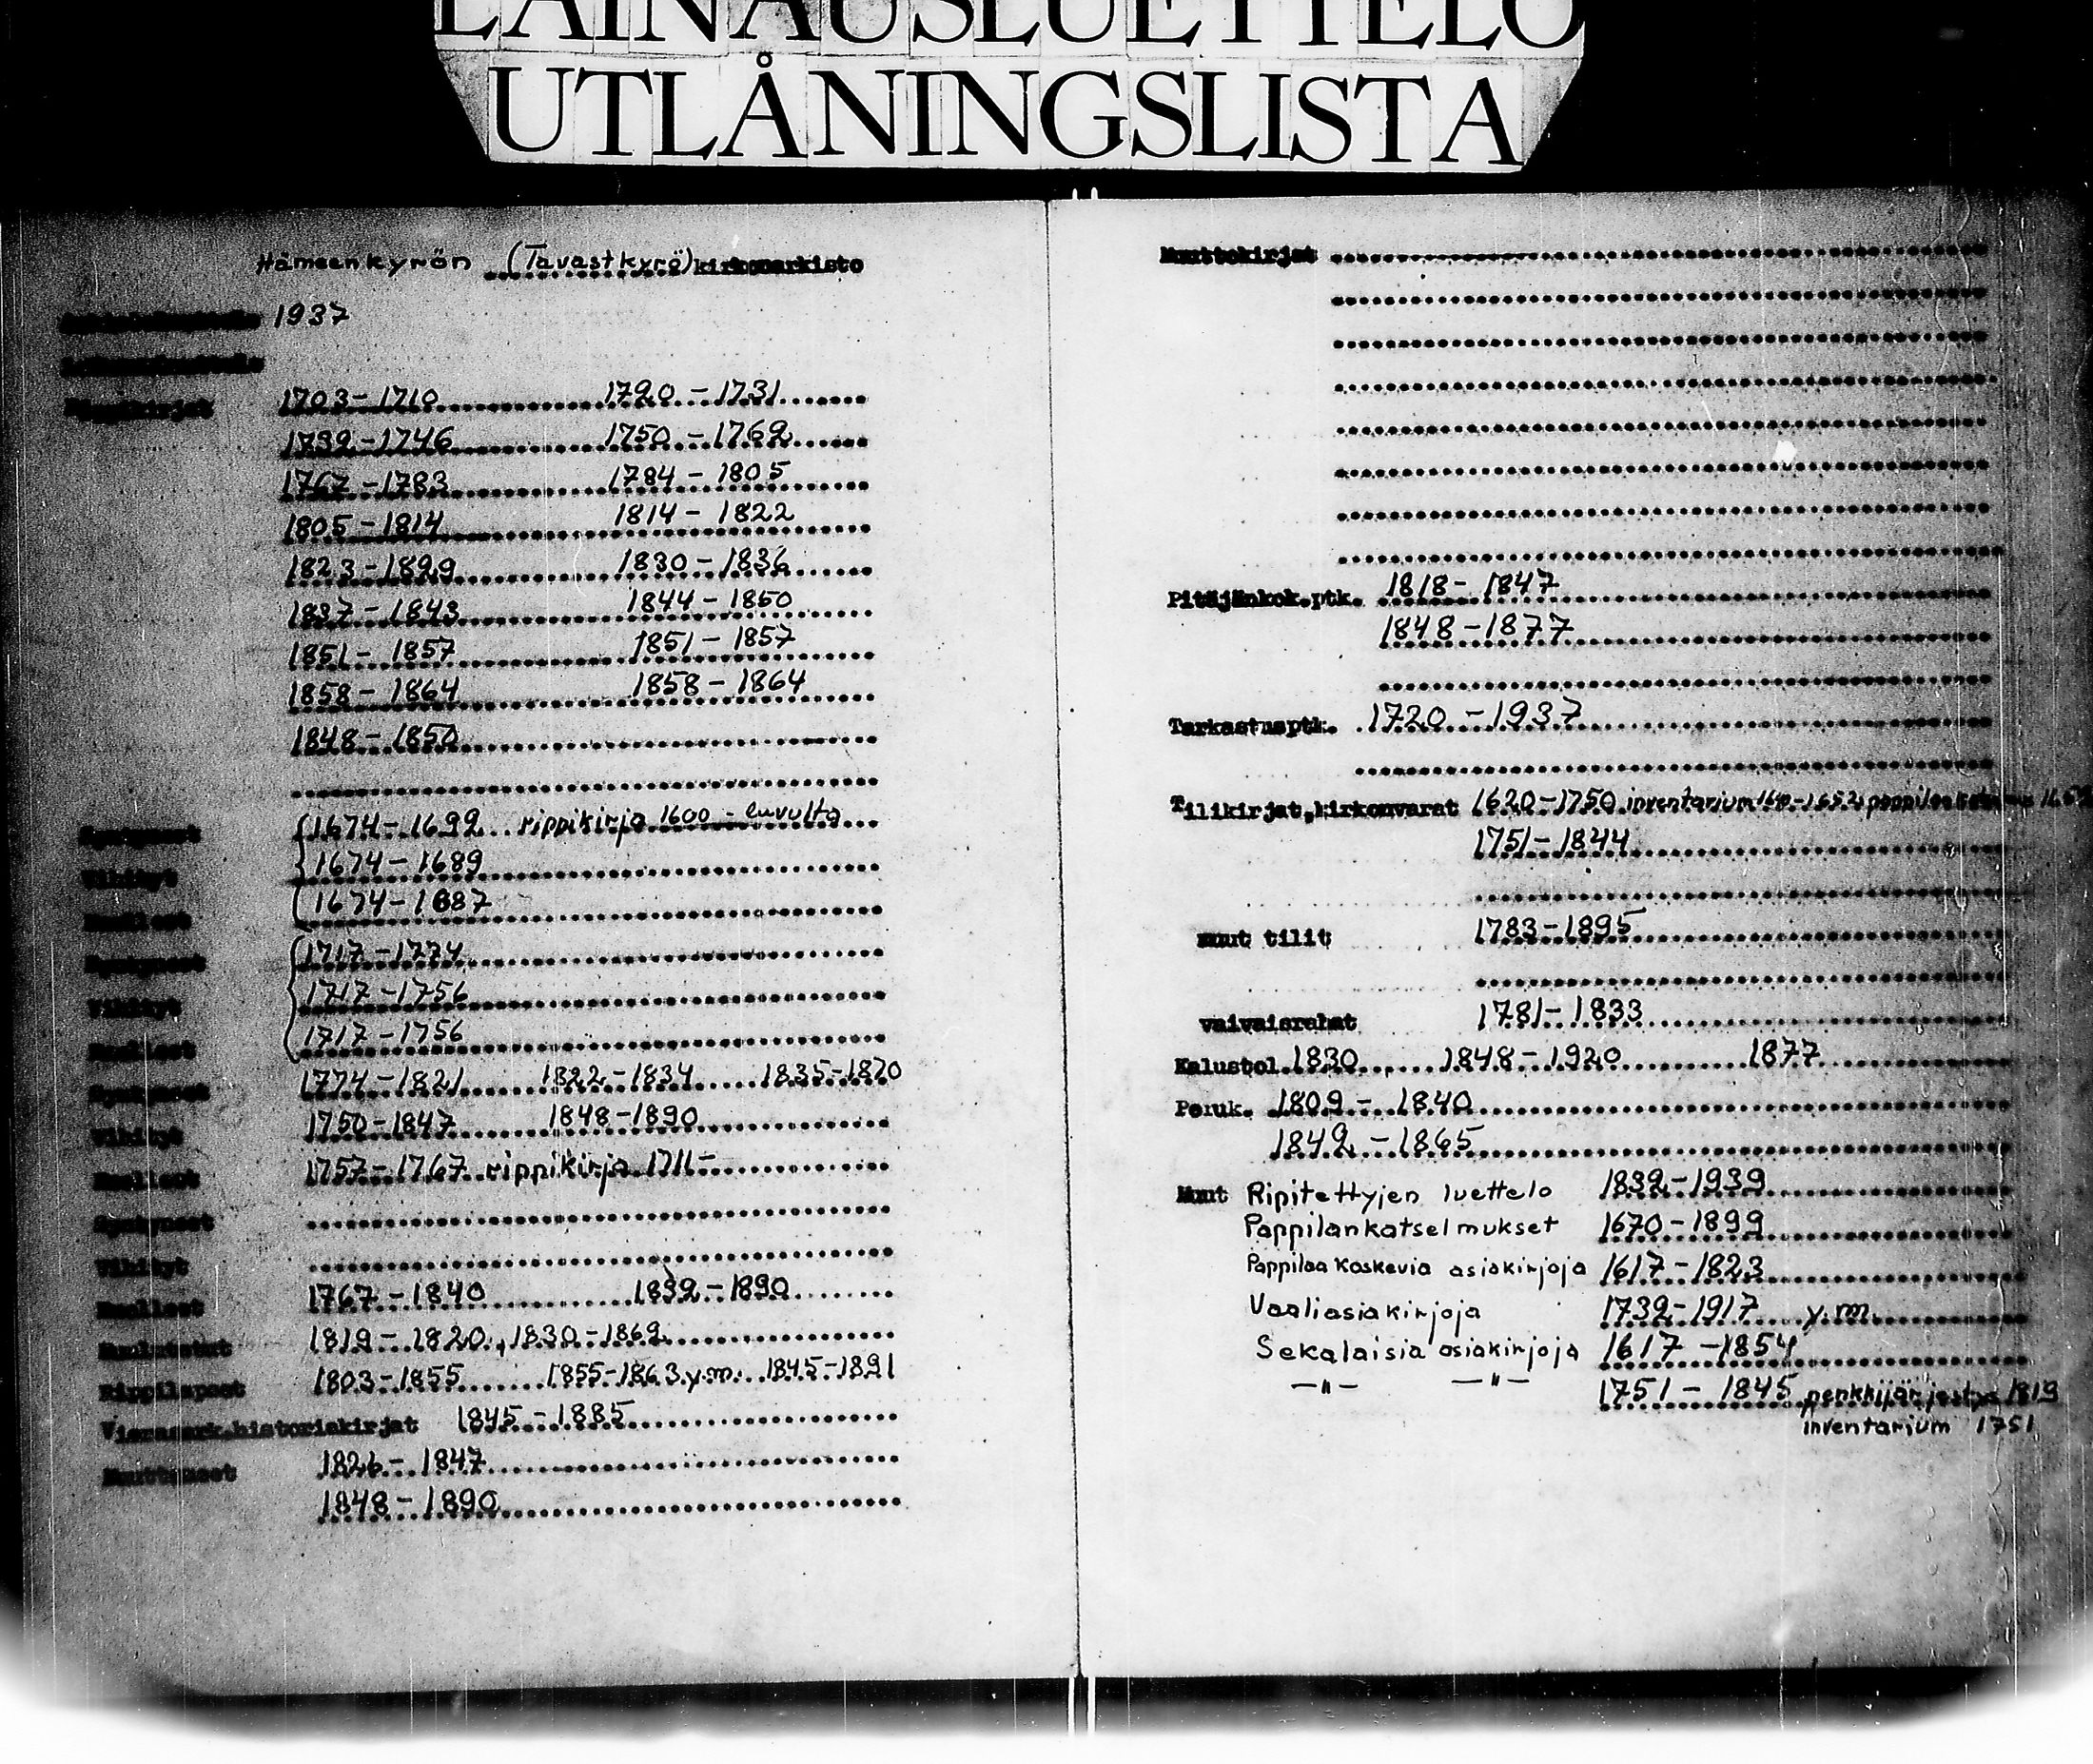 LAINAUSLUETTELO
UTLÅNINGSLISTA
Hämeenkyrön (Tavastkyrö) kirkonarkisto
1937
1703-1710 1720-1731
1732-1746 1750-1762
1767-1783 1784-1805
1805-1814 1814-1822
1823-1829 1830-1836
1837-1843 1844-1850
1851-1857 1851-1857
1858-1864 1858-1864
1848-1850
Syntyneet 1674-1692 rippikirja 1600-luvulta
Vihityt 1674-1689
Kuolleet 1674-1687
Syntyneet 1717-1774
Vihityt 1717-1756
Kuolleet 1717-1756
Syntyneet 1774-1821 1822-1834 1835-1870
Vihityt 1750-1847 1848-1890
Kuolleet 1757-1767 rippikirja 1711-
Syntyneet
Vihityt
Kuolleet 1767-1840 1832-1890
Kuulutetut 1819-1820, 1830-1869
Rippilapset 1803-1855 1855-1863 y.m. 1845-1891
historiakirjat 1845-1885
Muuttaneet 1826-1847
1848-1890
Muuttokirjat
Pitäjänkok.ptk. 1818-1847
1848-1877
Tarkastusptk. 1720-1937
Tilikirjat,kirkonvarat 1620-1750 inventarium
1751-1844
muut tilit 1783-1895
vaivaisrahat 1781-1833
Kalustol. 1830 1848-1920 1877
Peruk. 1809-1840
1842-1865
Muut Ripitettyjen luettelo 1832-1939
Pappilankatselmukset 1670-1899
Pappilaa koskevia asiakirjoja 1617-1823
Vaaliasiakirjoja 1732-1917 y.m.
Sekalaisia asiakirjoja 1617-1854
-"- -"- 1751-1845 penkkijärjestys 1819
inventarium 1751